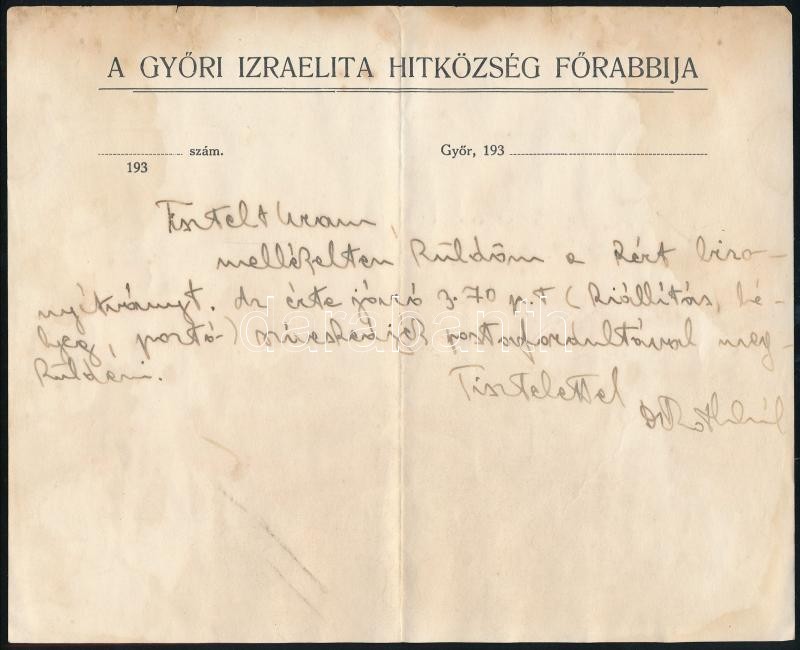 A GYŐRI IZRAELITA HITKÖZSÉG FŐRABBIJA
szám.
193
Győr, 193
Tisztelt Uram,
mellékelten küldöm a kért bizo-
nyítványt. Az érte járó 3.70 p.-t (kiállítás, bé-
lyeg, portó-) szíveskedjék postafordultával meg-
küldeni.
Tisztelettel
darabanth